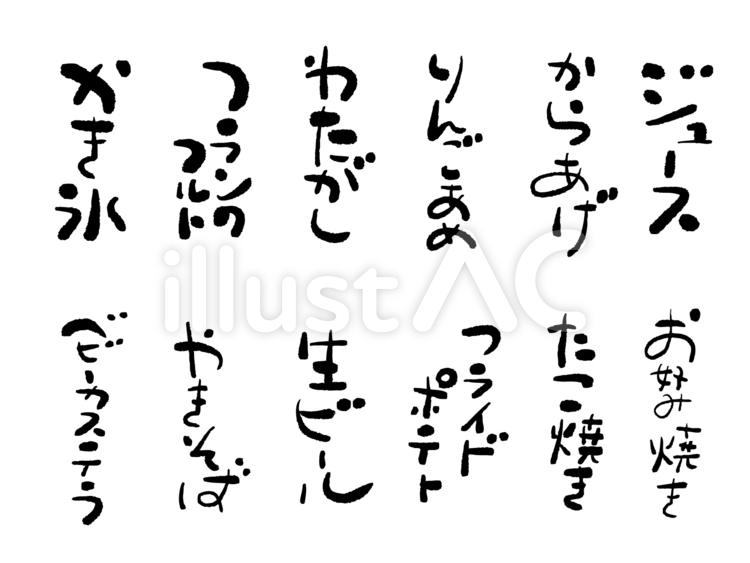 ジュース
からあげ
りんごあめ
わたがし
フランク
フルト
かき氷
お好み焼き
たこ焼き
フライド
ポテト
生ビール
やきそば
ベビーカステラ
illustAC